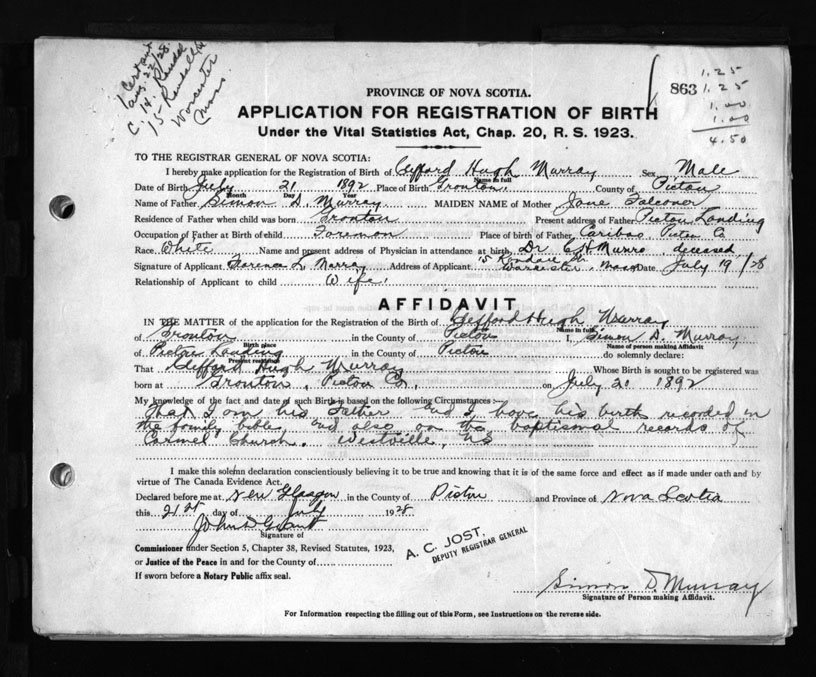 1 Cert ant
Aug. 22/28.
C. H. Randal
15 Kendall St
Worcester
Mass.
863
1.25
1.25
1.00
1.00
4.50
PROVINCE OF NOVA SCOTIA.
APPLICATION FOR REGISTRATION OF BIRTH
Under the Vital Statistics Act, Chap. 20, R. S. 1923.
TO THE REGISTRAR GENERAL OF NOVA SCOTIA:
I hereby make application for the Registration of Birth of Gifford Hugh Murray Sex Male
Name in full
Date of Birth July 21 1892 Place of Birth Trenton, County of Pictou
Month Day Year
Name of Father Simon D. Murray MAIDEN NAME of Mother Jane Falconer
Residence of Father when child was born Trenton Present address of Father Pictou Landing
Occupation of Father at Birth of child Foreman Place of birth of Father Caribao, Pictou Co
Race White Name and present address of Physician in attendance at birth Dr C H Munro, deceased
Signature of Applicant Florence L. Murray Address of Applicant 15 Kendall St Worcester, Mass Date July 19/28
Relationship of Applicant to child Wife.
AFFIDAVIT
IN THE MATTER of the application for the Registration of the Birth of Gifford Hugh Murray
Name in full
of Trenton in the County of Pictou I, Simon D. Murray
Birth place Name of person making Affidavit
of Pictou Landing in the County of Pictou do solemnly declare:
Present residence
That Gifford Hugh Murray Whose Birth is sought to be registered was
born at Trenton, Pictou Co., on July 21 1892
My knowledge of the fact and date of such Birth is based on the following Circumstances:—
That I am his Father and I have his birth recorded in
the family bible, and also on the baptismal records of
Carmel Church. Westville, NS
I make this solemn declaration conscientiously believing it to be true and knowing that it is of the same force and effect as if made under oath and by
virtue of The Canada Evidence Act.
Declared before me at New Glasgow in the County of Pictou and Province of Nova Scotia
this 21st day of July 1928
John D Grant
Signature of
Commissioner under Section 5, Chapter 38, Revised Statutes, 1923,
or Justice of the Peace in and for the County of
If sworn before a Notary Public affix seal.
A. C. JOST,
DEPUTY REGISTRAR GENERAL
Simon D. Murray
Signature of Person making Affidavit.
For Information respecting the filling out of this Form, see Instructions on the reverse side.